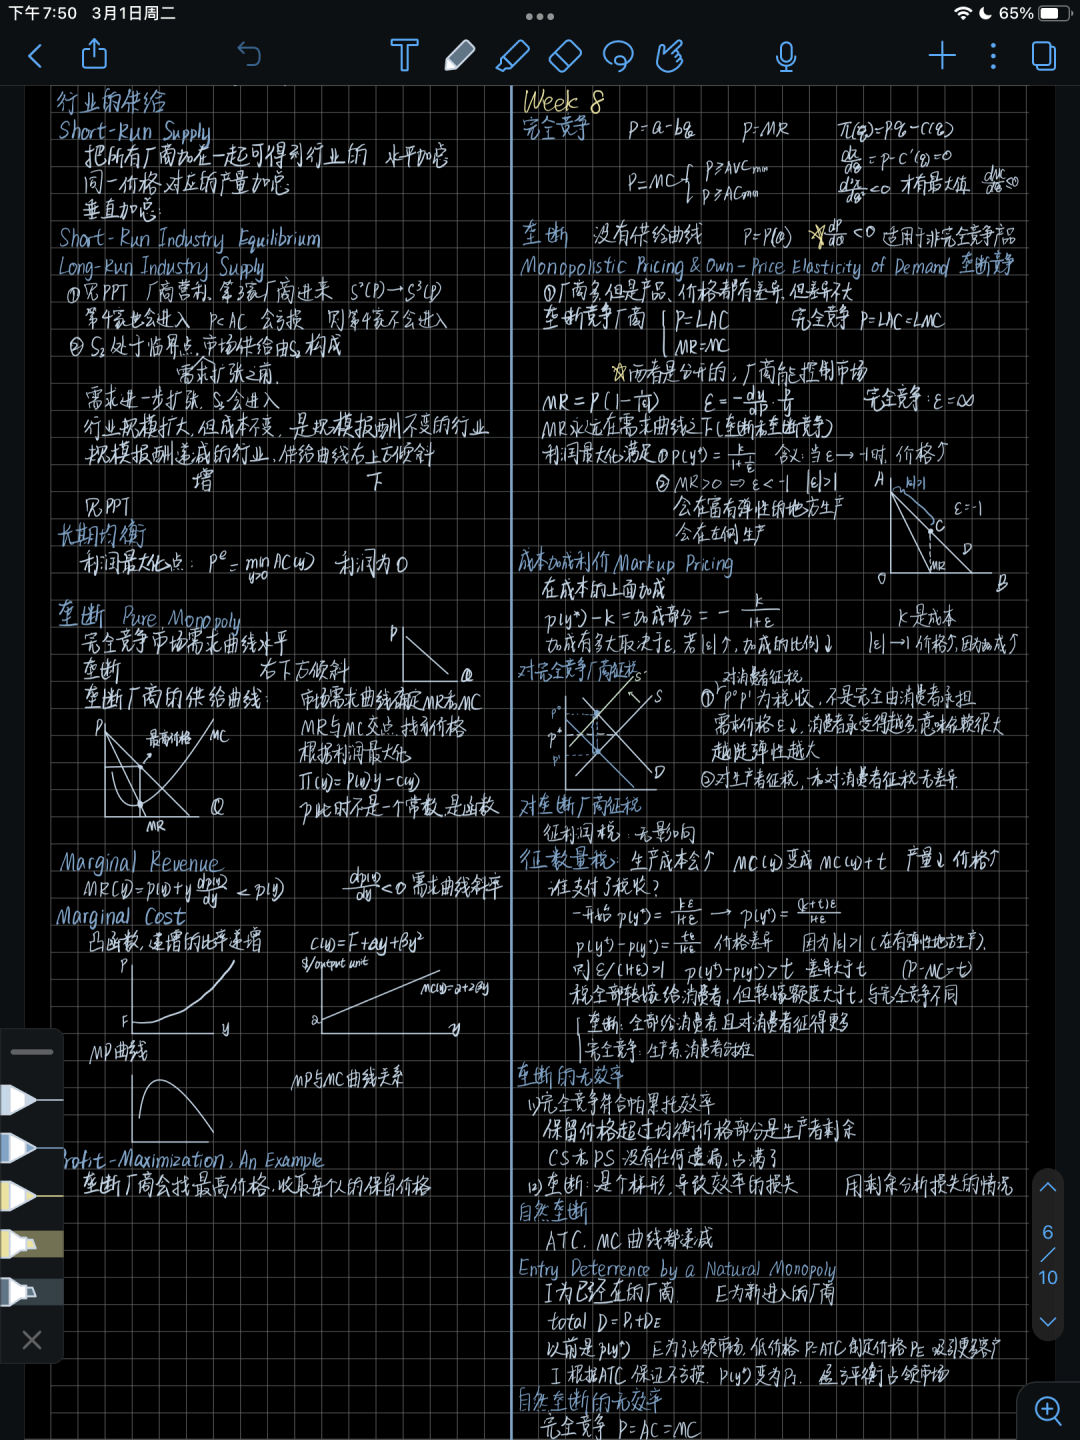 下午7:50 3月1日周二
65%
行业的供给
Short-Run Supply
把所有厂商加在一起可得到行业的 水平加总
同一价格对应的产量加总
垂直加总:
Short-Run Industry Equilibrium
Long-Run Industry Supply
①见PPT 厂商营利,第3家厂商进来 S²(P)→S³(P)
第4家也会进入 P<AC 会亏损 则第4家不会进入
② S₂处于临界点,市场供给由S₂构成
需求扩张之前.
需求进一步扩张,S₃会进入
行业规模扩大,但成本不变,是规模报酬不变的行业
规模报酬递减的行业,供给曲线右上方倾斜
增 下
见PPT
长期均衡
利润最大化点: Pᵉ=min AC(y) 利润为0
y>0
垄断 Pure Monopoly
完全竞争市场需求曲线水平
垄断 右下方倾斜
P
Q
垄断厂商的供给曲线:
市场需求曲线确定MR和MC
MR与MC交点,找到价格
根据利润最大化
π(y)=p(y)y-c(y)
P此时不是一个常数,是函数
P
最高价格
MC
Q
MR
Marginal Revenue
MR(y)=p(y)+y dp(y)/dy < p(y) dp(y)/dy<0 需求曲线斜率
Marginal Cost
凸函数,递增的比率递增 C(y)=F+αy+βy²
P
F
y
$/output unit
MC(y)=α+2βy
a
y
MP曲线
MP与MC曲线关系
rofit-Maximization, An Example
垄断厂商会找最高价格,收取每个人的保留价格
Week 8
完全竞争 P=a-bq P=MR π(q)=Pq-C(q)
P=MC { P≥AVCmin
P≥ACmin
dπ/dq=P-C'(q)=0
d²π/dq²<0 才有最大值
垄断 没有供给曲线 P=P(Q) ☆dP/dQ<0 适用于非完全竞争产品
Monopolistic Pricing & Own-Price Elasticity of Demand 垄断竞争
①厂商多,但是产品、价格都有差异,但差异不大
垄断竞争厂商 { P=LAC 完全竞争 P=LAC=LMC
MR=MC
☆两者是分开的,厂商能控制市场
MR=P(1-1/|ε|) ε=-dy/dp·p/y 完全竞争:ε=∞
MR永远在需求曲线之下(垄断和垄断竞争)
利润最大化满足①P(y*)=k/(1+1/ε) 含义:当ε→-1时,价格↑
②MR>0 ⇒ ε<-1 |ε|>1
会在富有弹性的地方生产
会在左侧生产
A
|ε|>1
C
ε=-1
D
O
MR
B
成本加成利价 Markup Pricing
在成本的上面加成
p(y*)-k=加成部分=-k/(1+ε) k是成本
加成有多大取决于ε,若|ε|↑,加成的比例↓ |ε|→1 价格↑,因为加成↑
对完全竞争厂商征税
S'
S
P
P*
P'
D
对消费者征税
①P⁰P'为税收,不是完全由消费者承担
需求价格ε↓,消费者承受得越多,意味依赖很大
越陡弹性越大
②对生产者征税,和对消费者征税无差异
对垄断厂商征税
征利润税:无影响
征数量税:生产成本会↑ MC(y)变成MC(y)+t 产量↓ 价格↑
谁支付了税收?
一开始 p(y*)=kε/(1+ε) → p(yᵗ)=(k+t)ε/(1+ε)
p(yᵗ)-p(y*)=tε/(1+ε) 价格差异 因为|ε|>1 (在有弹性地方生产),
则 ε/(1+ε)>1 p(yᵗ)-p(y*)>t 差异大于t (P-MC=t)
税全部转嫁给消费者,但转嫁额度大于t,与完全竞争不同
垄断:全部给消费者,且对消费者征得更多
完全竞争:生产者,消费者分担
垄断的无效率
(1)完全竞争符合帕累托效率
保留价格超过均衡价格部分是生产者剩余
CS和PS没有任何遗漏,占满了
(2)垄断:是个梯形,导致效率的损失 用剩余分析损失的情况
自然垄断
ATC、MC曲线都递减
Entry Deterrence by a Natural Monopoly
I为已经在的厂商. E为新进入的厂商
total D=Dᵢ+DE
以前是p(y*) E为了占领市场,低价格 P=ATC 制定价格PE 吸引更多客户
I根据ATC保证不亏损,p(y*)变为Pᵢ. 盈亏平衡占领市场
自然垄断的无效率
完全竞争 P=AC=MC
6
/
10